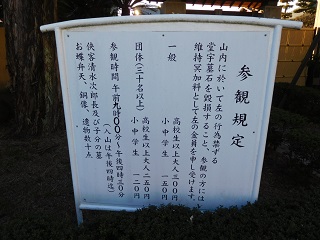 参観規定
山内に於いて左の行為禁ずる
堂宇墓石を毀損すること、参観の方には
維持冥加料として左の金員を申し受けます。
一般
高校生以上大人三〇〇円
小中学生 一五〇円
団体(三十名以上)
高校生以上大人二五〇円
小中学生 一二〇円
参観時間 午前九時〇〇分〜午後四時三〇分
(入山は午後四時迄)
侠客清水次郎長及び子分の墓
お蝶、弁天、銅像、遺物数十点